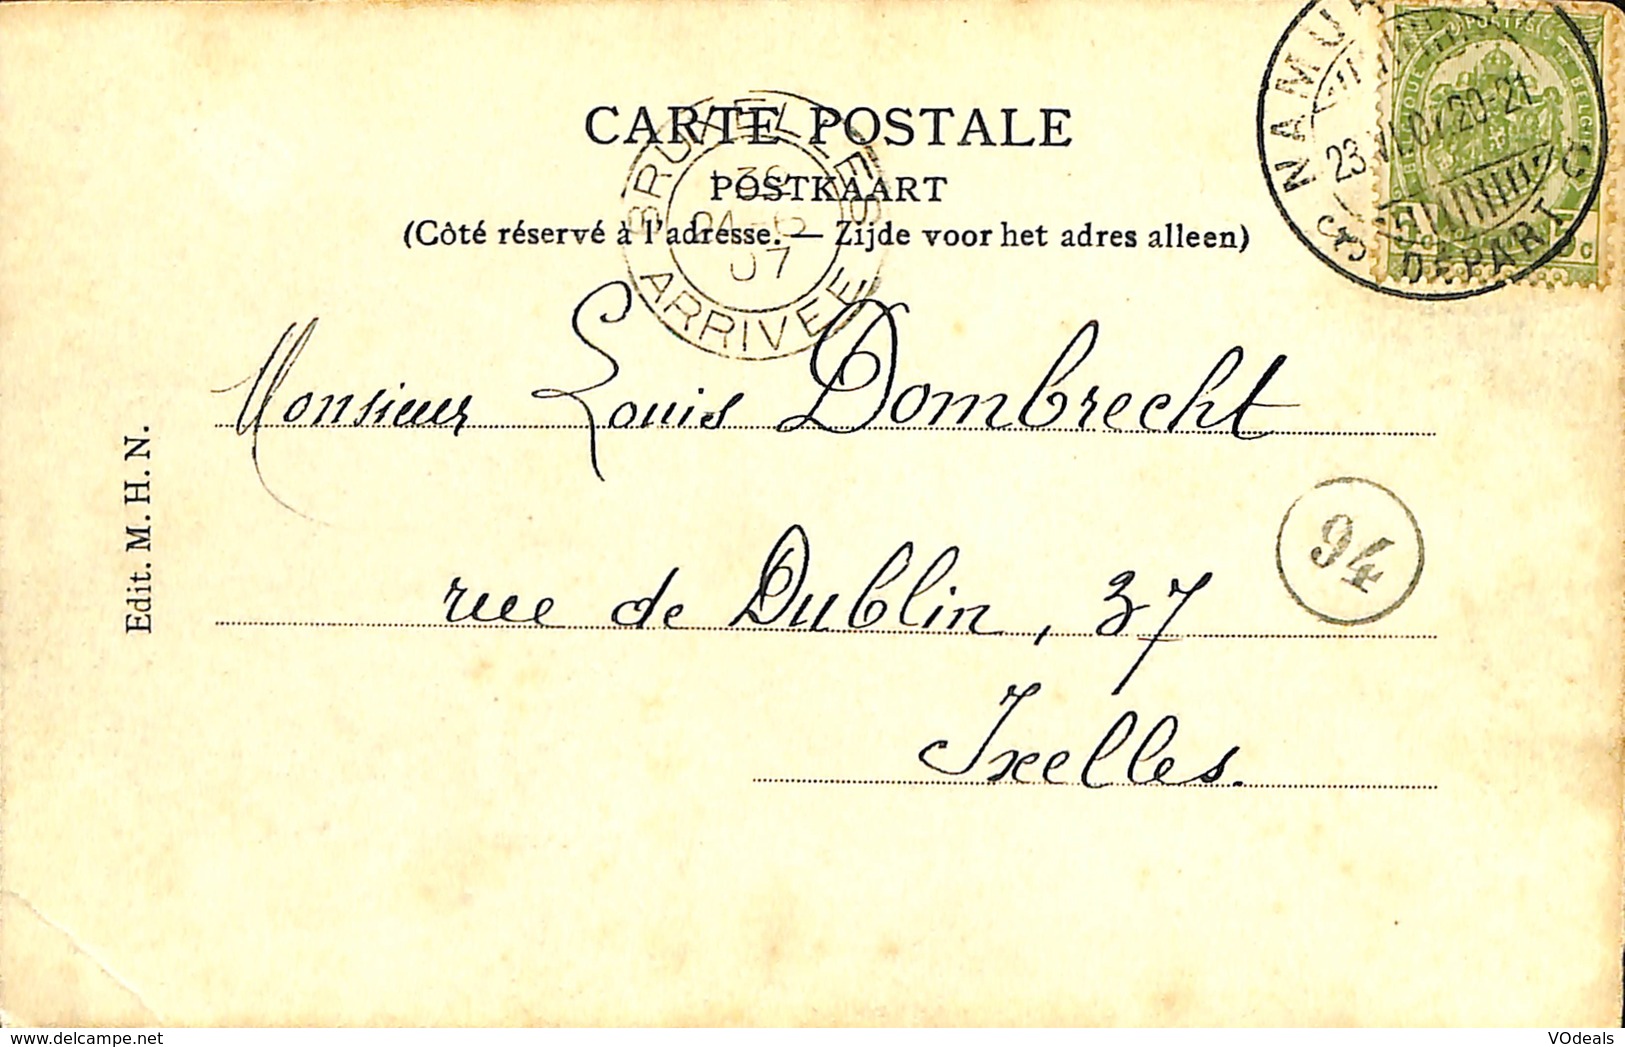 CARTE POSTALE
POSTKAART
(Côté réservé à l'adresse. — Zijde voor het adres alleen)
BRUXELLES
07
ARRIVEE
NAMUR
23 VI 07 20-21
DEPART
POSTES
Monsieur Louis Dombrecht
rue de Dublin, 37
Ixelles.
94
Edit. M. H. N.
VOdeals